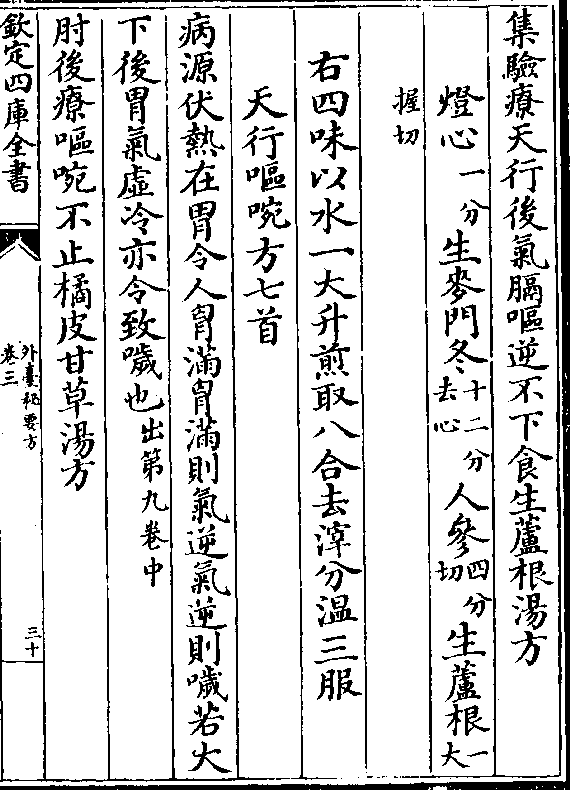 集驗療天行後氣膈嘔逆不下食生蘆根湯方
燈心一分生麥門冬十二分去心人參四分切生蘆根一大
握切
右四味以水一大升煎取八合去滓分温三服
天行嘔啘方七首
病源伏熱在胃令人胷滿胷滿則氣逆氣逆則噦若大
下後胃氣虛冷亦令致噦也出第九卷中
肘後療嘔啘不止橘皮甘草湯方
欽定四庫全書
外臺秘要方
卷三
三十